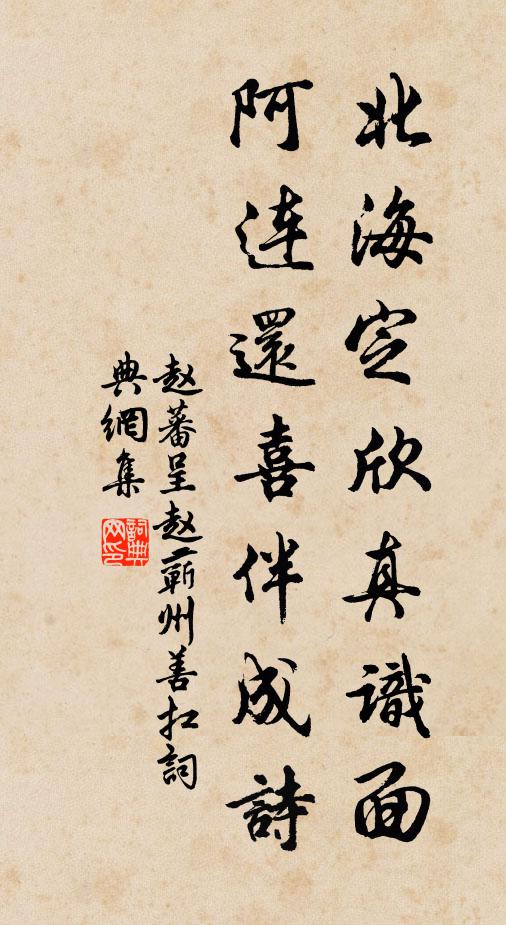 北海定欣真識面
阿连還喜伴成詩
赵蕃呈赵蕲州善扛詞
典網集
詞典网印